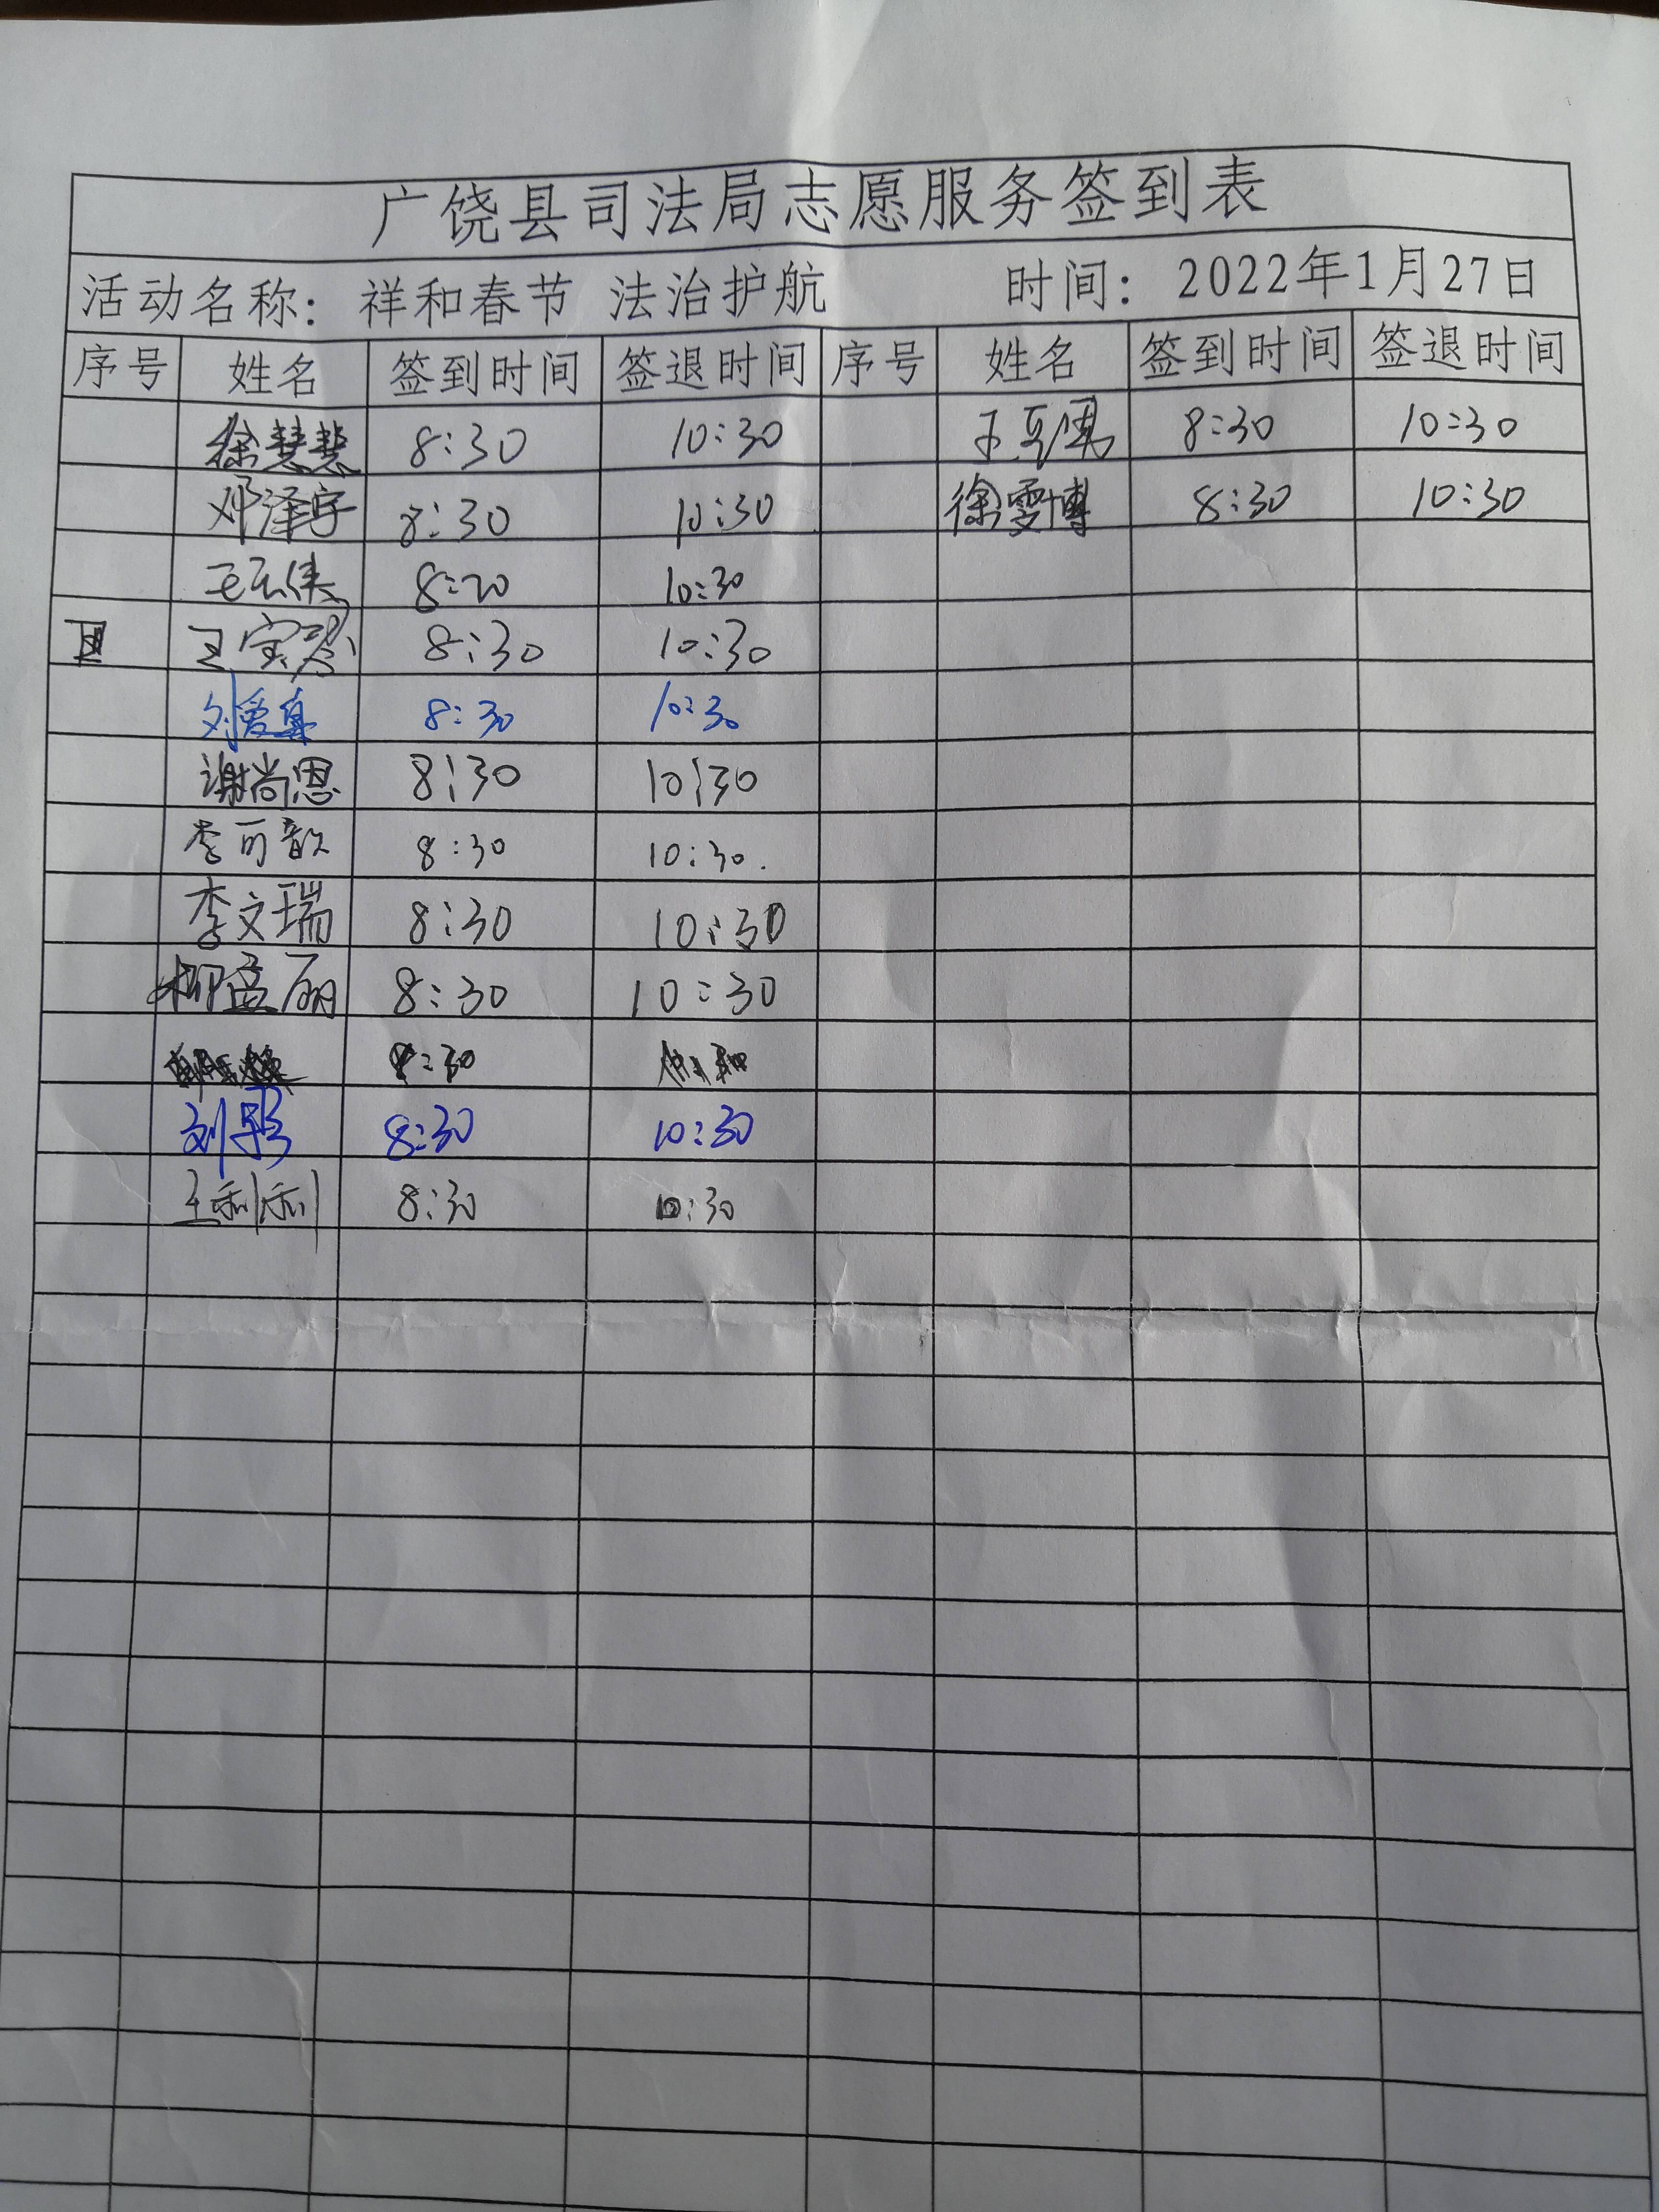 广饶县司法局志愿服务签到表
活动名称：祥和春节 法治护航 时间：2022年1月27日
序号 姓名 签到时间 签退时间 序号 姓名 签到时间 签退时间
徐慧慧 8:30 10:30 8:30 10:30
邓泽宇 8:30 10:30 徐雯博 8:30 10:30
10:30
王宝琴 8:30 10:30
刘爱真 8:30 10:30
谢尚恩 8:30 10:30
李可歆 8:30 10:30.
李文瑞 8:30 10:30
柳孟丽 8:30 10:30
8:30
刘彤 8:30 10:30
王利利 8:30 10:30